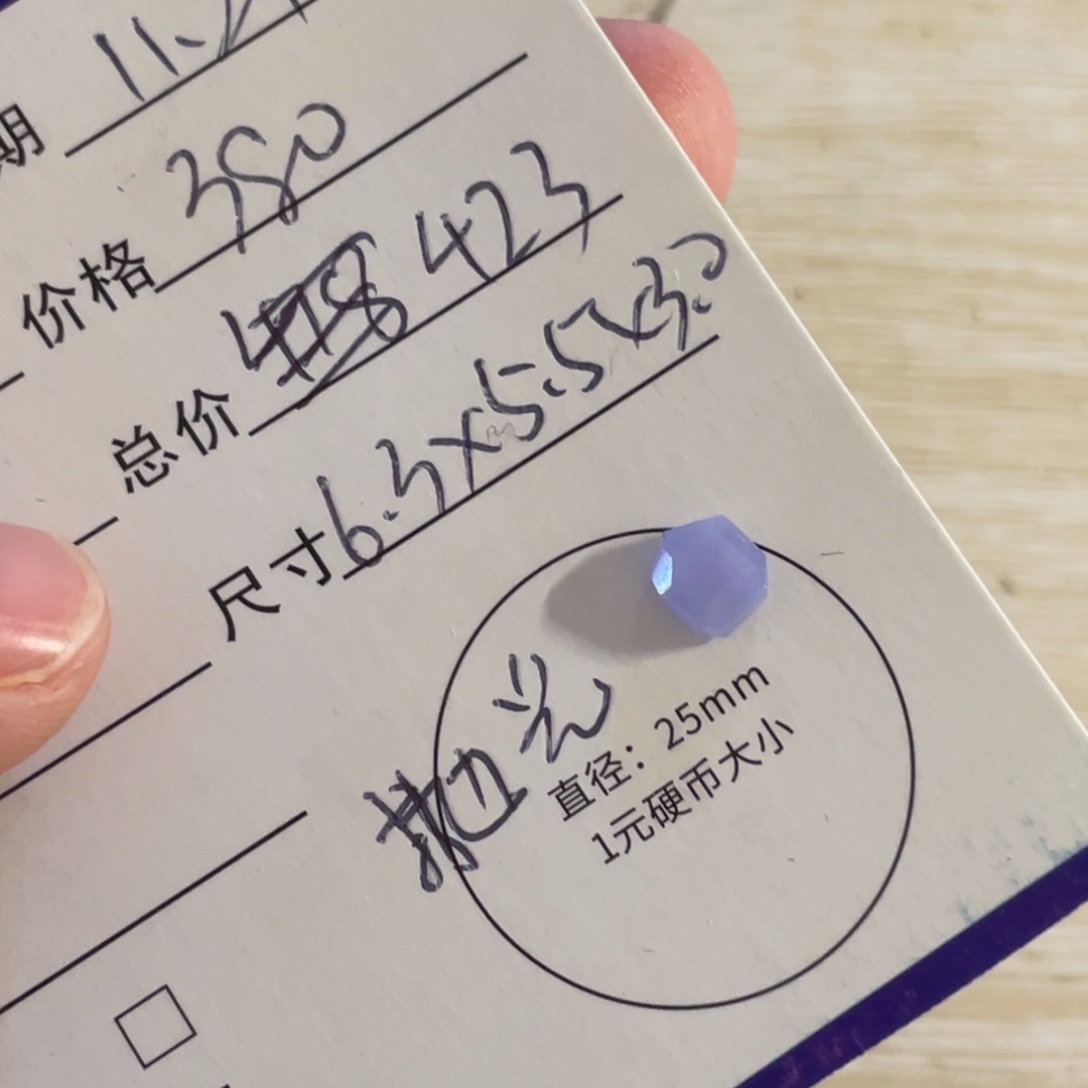 期 11.2
价格 380
总价 423
尺寸 6.3×5.5×3.0
抛光
直径：25mm
1元硬币大小